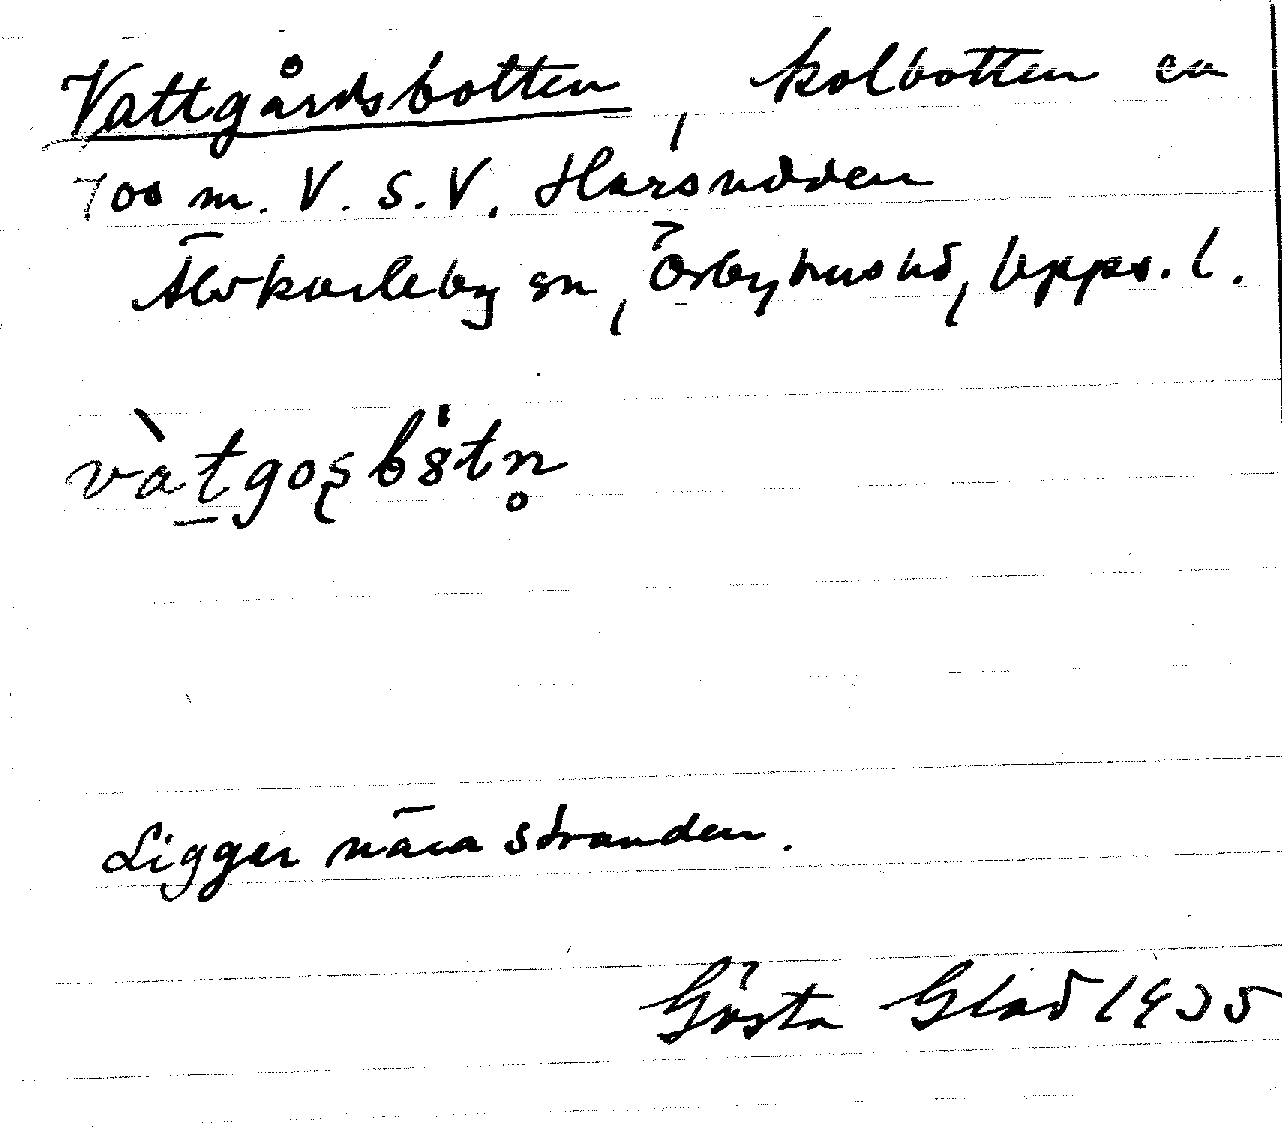 Vattgårdsbotten, kolbotten ca
700 m. V. S. V. Harsudden
Älvkarleby sn, Örbyhus hd, Upps. l.
Ligger nära stranden.
Gösta Glad 1935